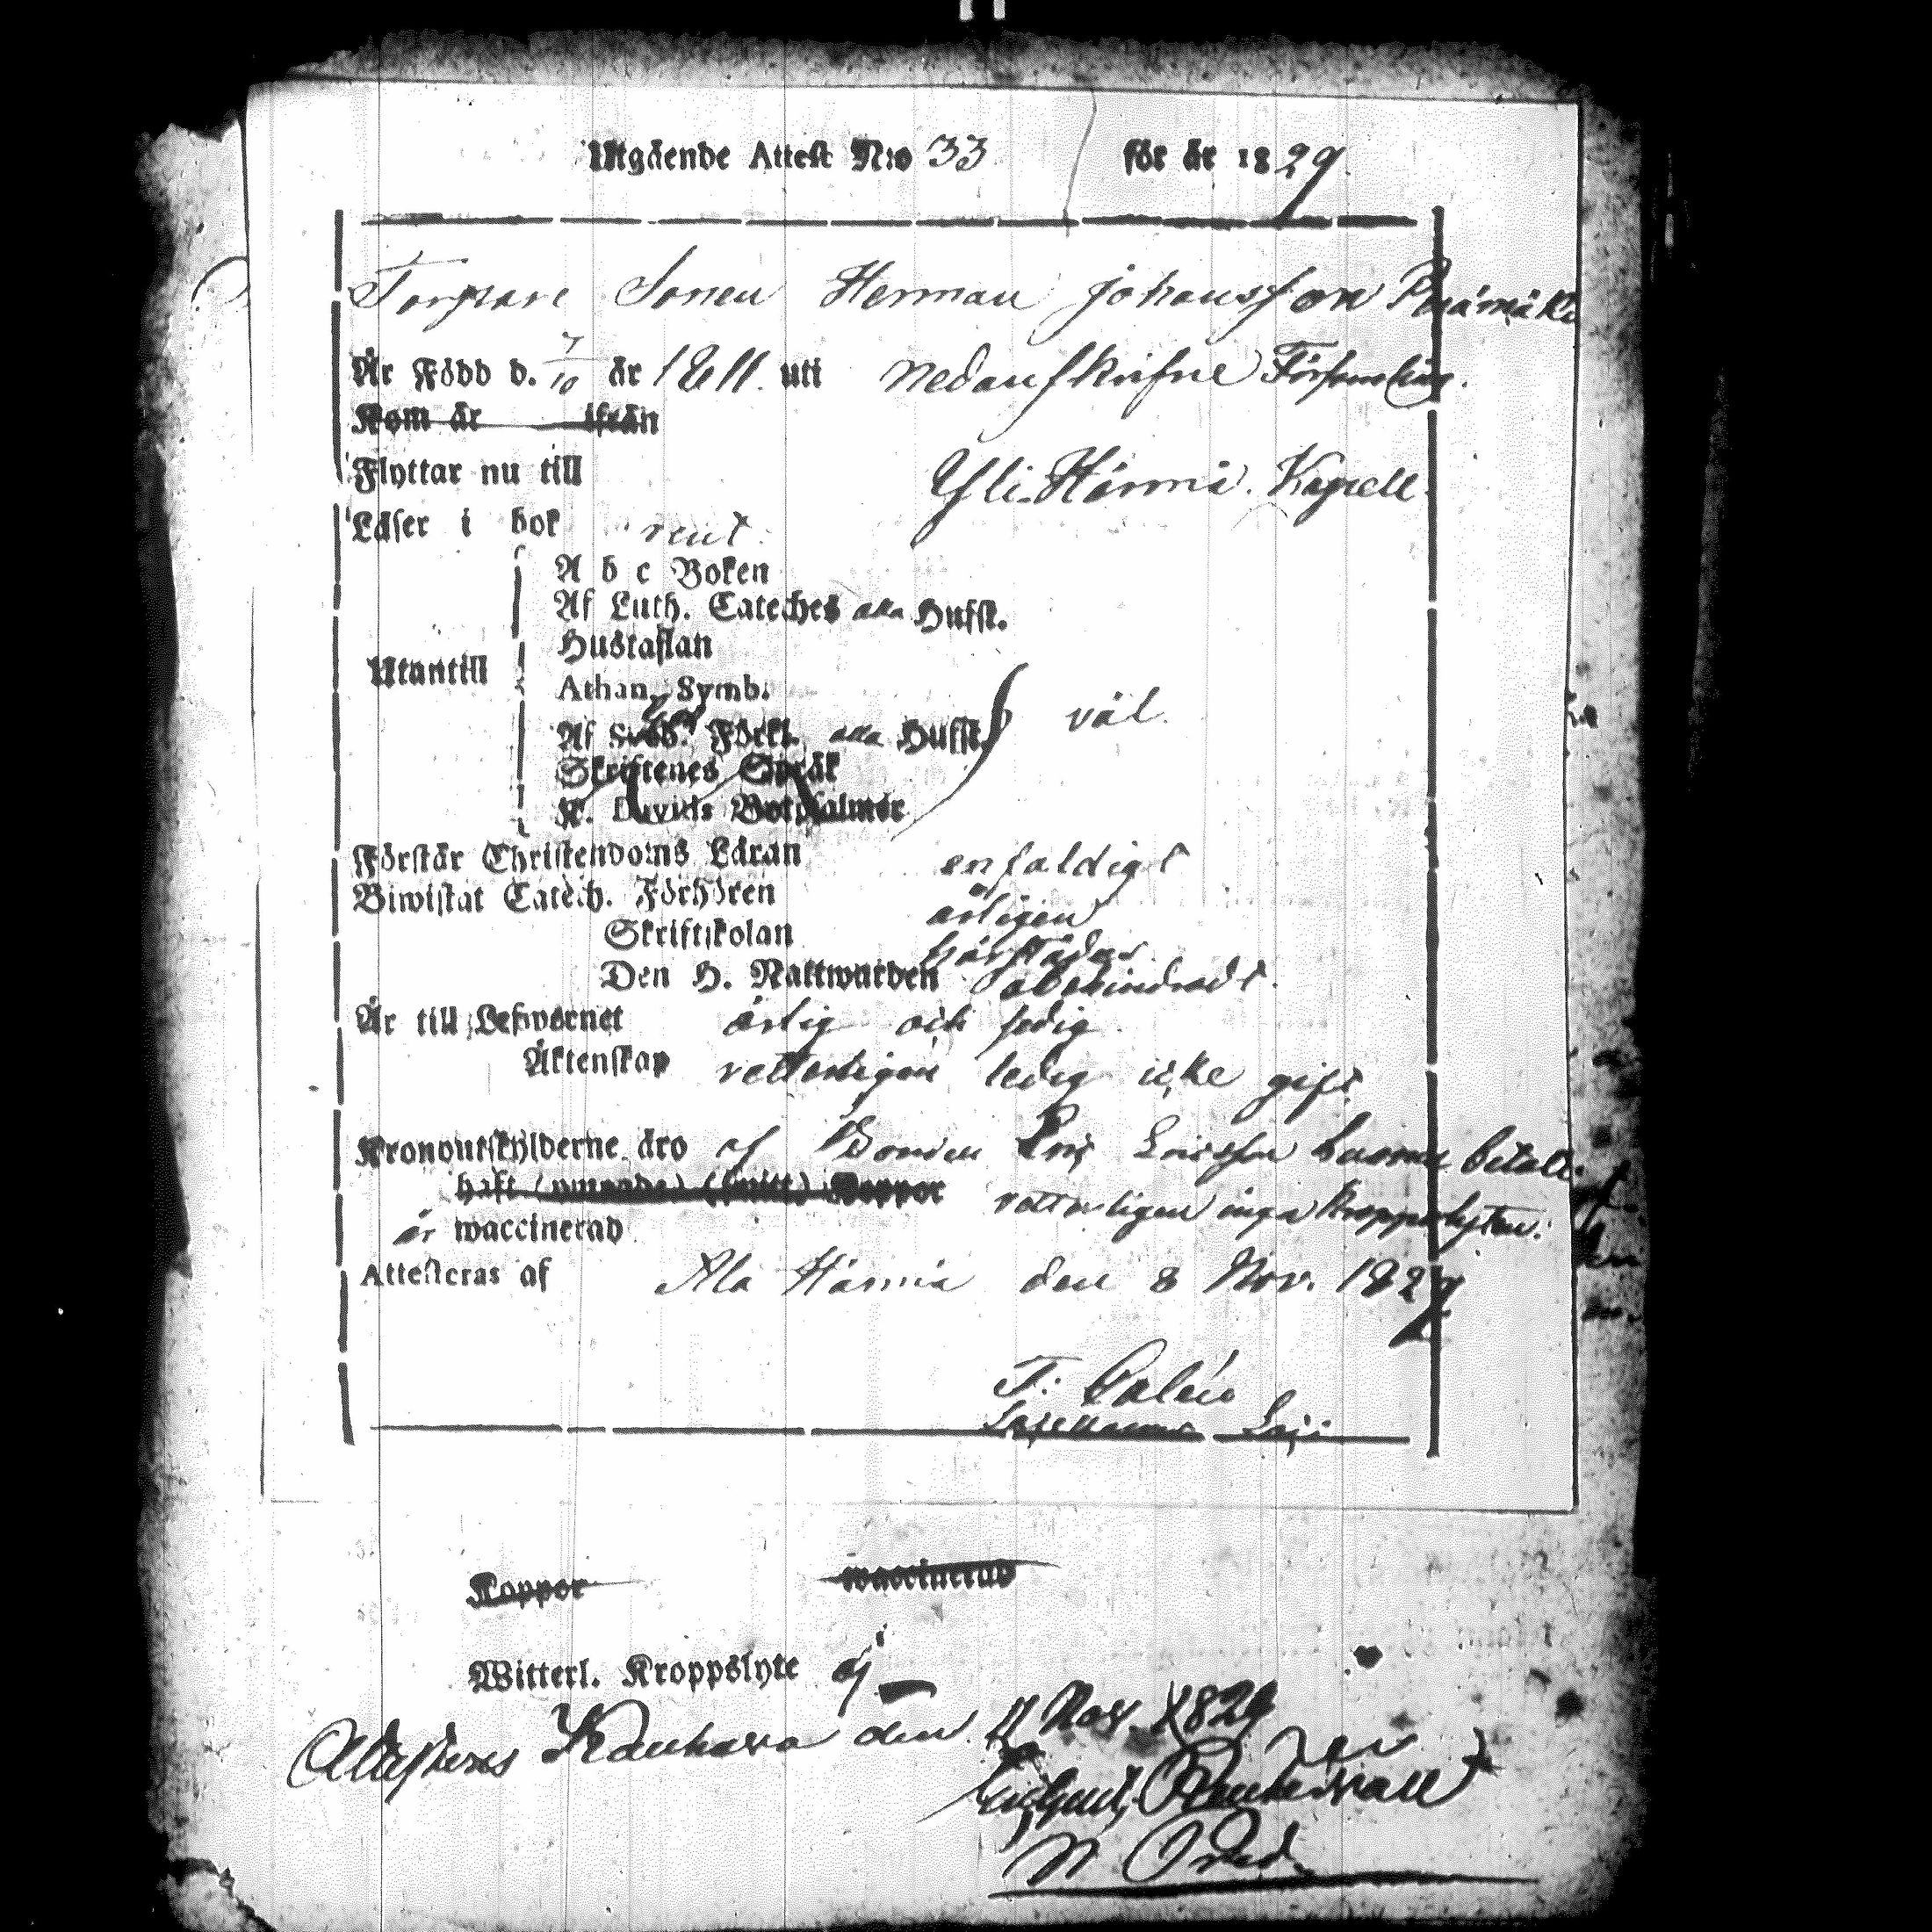 Utgående Attest N:o 33 för år 1829.
Torpare Sonen Herman Johansson
Är Född d. 7/10 år 1811. uti nedanskrifne Församling.
Kom år ifrån
Flyttar nu till Yli Härmä Kapell.
Läser i bok rent.
Utantill
A b c Boken
Af Luth. Cateches alla Hufst.
Hustaflan
Athan. Symb.
Af Förkl. alla Hufst. väl.
Skriftenes Språk
K. Davids Botpsalmer
Förstår Christendoms Läran enfaldigt
Biwistat Catech. Förhören årligen
Skriftskolan härstädes
Den H. Nattwarden obehindradt.
Är till Lefwernet ärlig och sedig
Äktenskap vetterligen ledig icke gift
Kronoutskylderne äro af Bonden Eric Ericsson betalte.
haft Koppor vetterligen inga kroppslyten.
är waccinerad
Attesteras af Ala Härmä den 8 Nov. 1829
Koppor waccinerad
Witterl. Kroppslyte ej
Attesteras Kauhava den 11 Nov. 1829